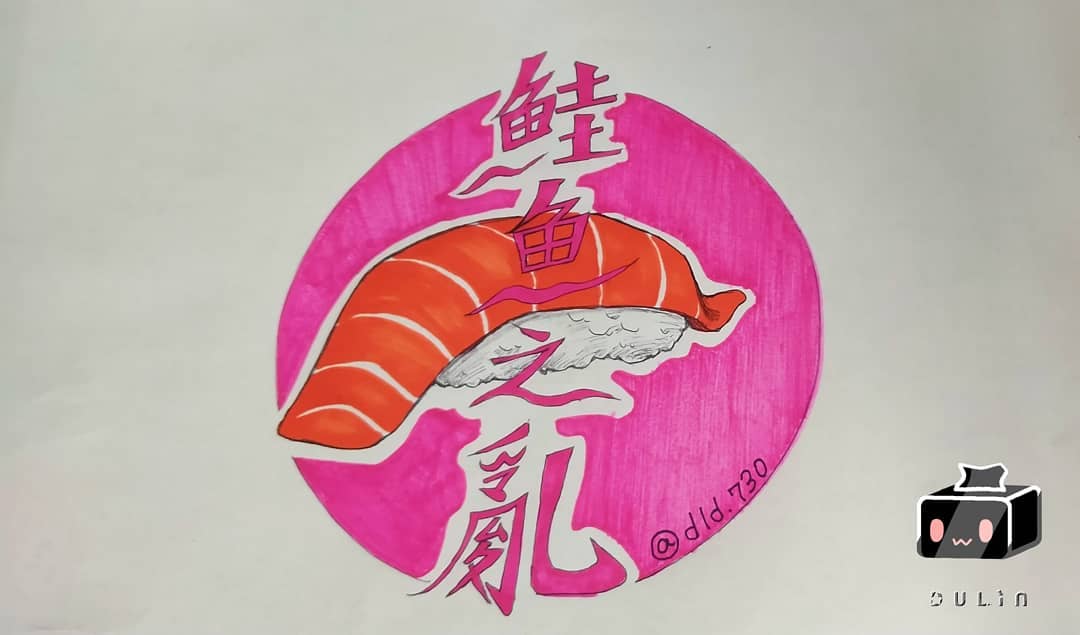 鮭魚之亂
@dld.730
DULIN